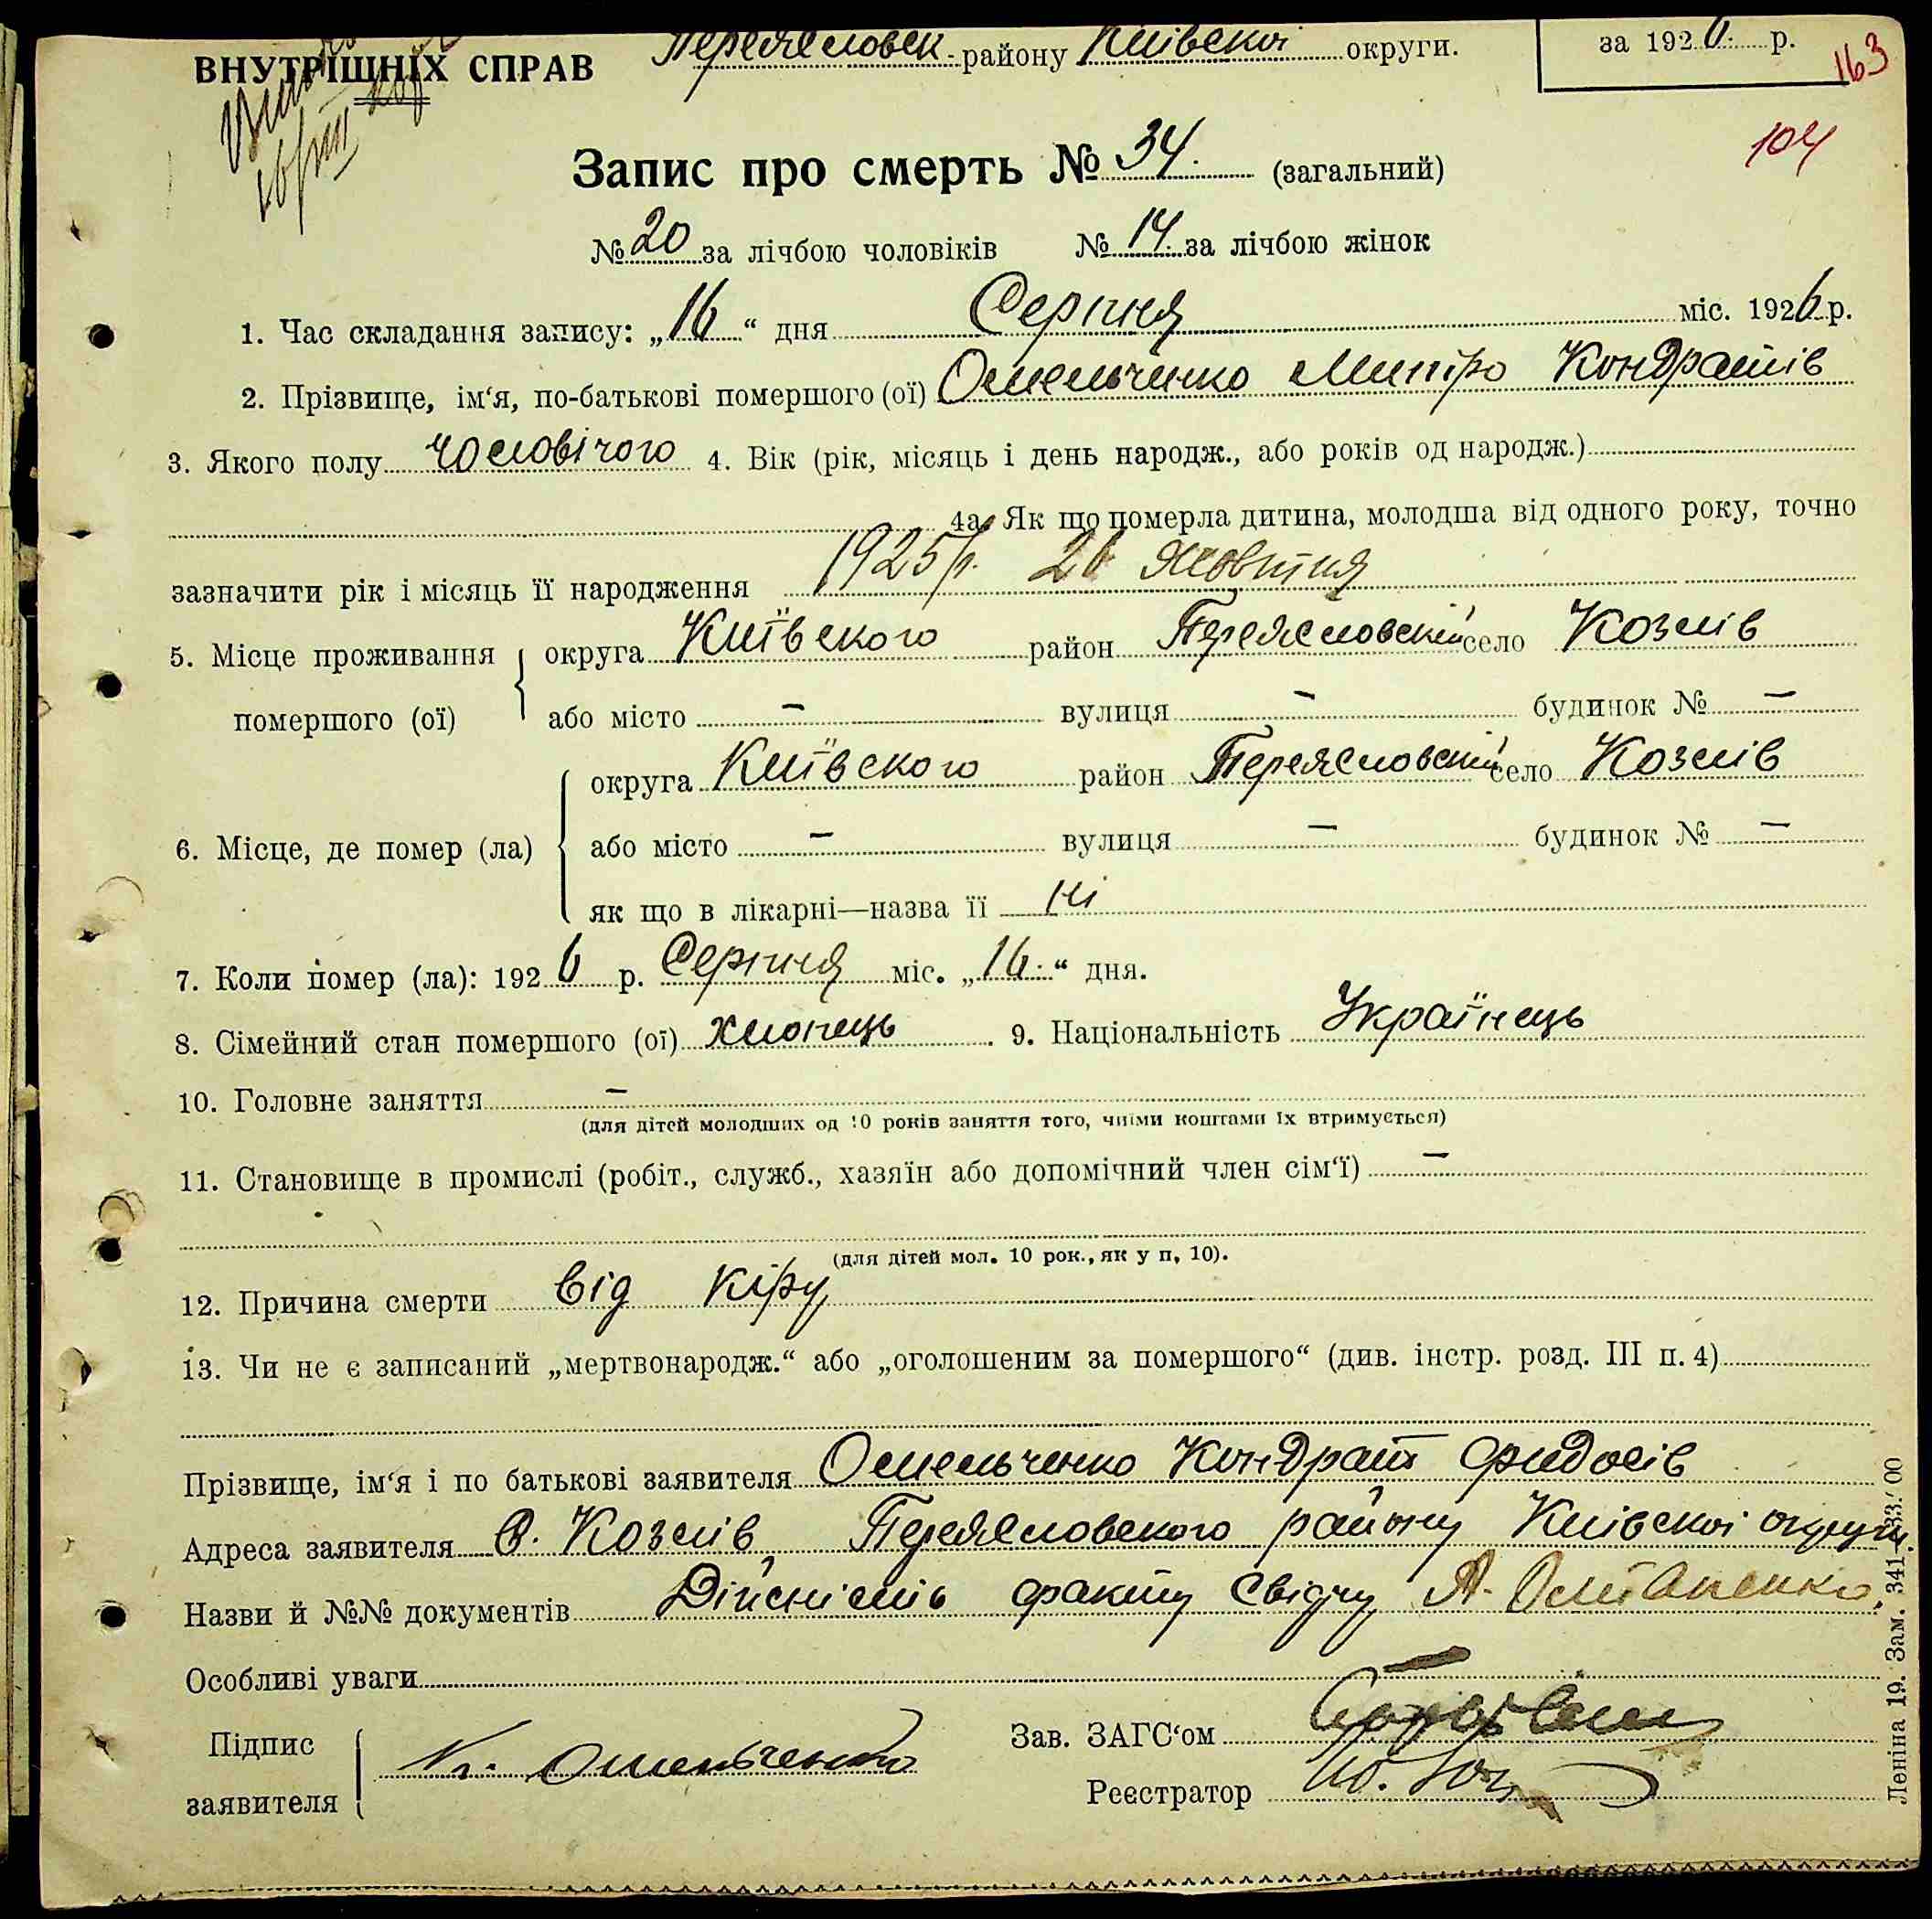 ВНУТРІШНІХ СПРАВ Переяєловек.- району Київскої округи. за 1926. р. 163
16/VIII
104
Запис про смерть № 34. (загальний)
№ 20 за лічбою чоловіків № 14. за лічбою жінок
1. Час складання запису: „16“ дня Серпня міс. 1926 р.
2. Прізвище, ім‘я, по-батькові помершого (ої) Омельченко Митро Кондратів
3. Якого полу чоловічого 4. Вік (рік, місяць і день народж., або років од народж.)
4а. Як що померла дитина, молодша від одного року, точно
зазначити рік і місяць її народження 1925 р. 26 жовтня
5. Місце проживання округа Київского район Переясловский село Козлів
помершого (ої) або місто – вулиця – будинок № –
округа Київского район Переясловский село Козлів
6. Місце, де помер (ла) або місто – вулиця – будинок № –
як що в лікарні—назва її ні
7. Коли помер (ла): 1926 р. Серпня міс. „16.“ дня.
8. Сімейний стан помершого (ої) хлопець. 9. Національність Українець
10. Головне заняття –
(для дітей молодших од 10 років заняття того, чиїми коштами їх втримується)
11. Становище в промислі (робіт., служб., хазяїн або допомічний член сім‘ї) –
(для дітей мол. 10 рок., як у п, 10).
12. Причина смерти від кіру
13. Чи не є записаний „мертвонародж.“ або „оголошеним за помершого“ (див. інстр. розд. III п. 4)
Прізвище, ім‘я і по батькові заявителя Омельченко Кондрат Федосів
Адреса заявителя С. Козлів, Переясловского району Київскої округи.
Назви й №№ документів Дійсність факту свідчу А. Остапенко.
Особливі уваги –
Підпис заявителя К. Омельченко
Зав. ЗАГС‘ом
Реєстратор
Леніна 19. Зам. 341—33.' 00